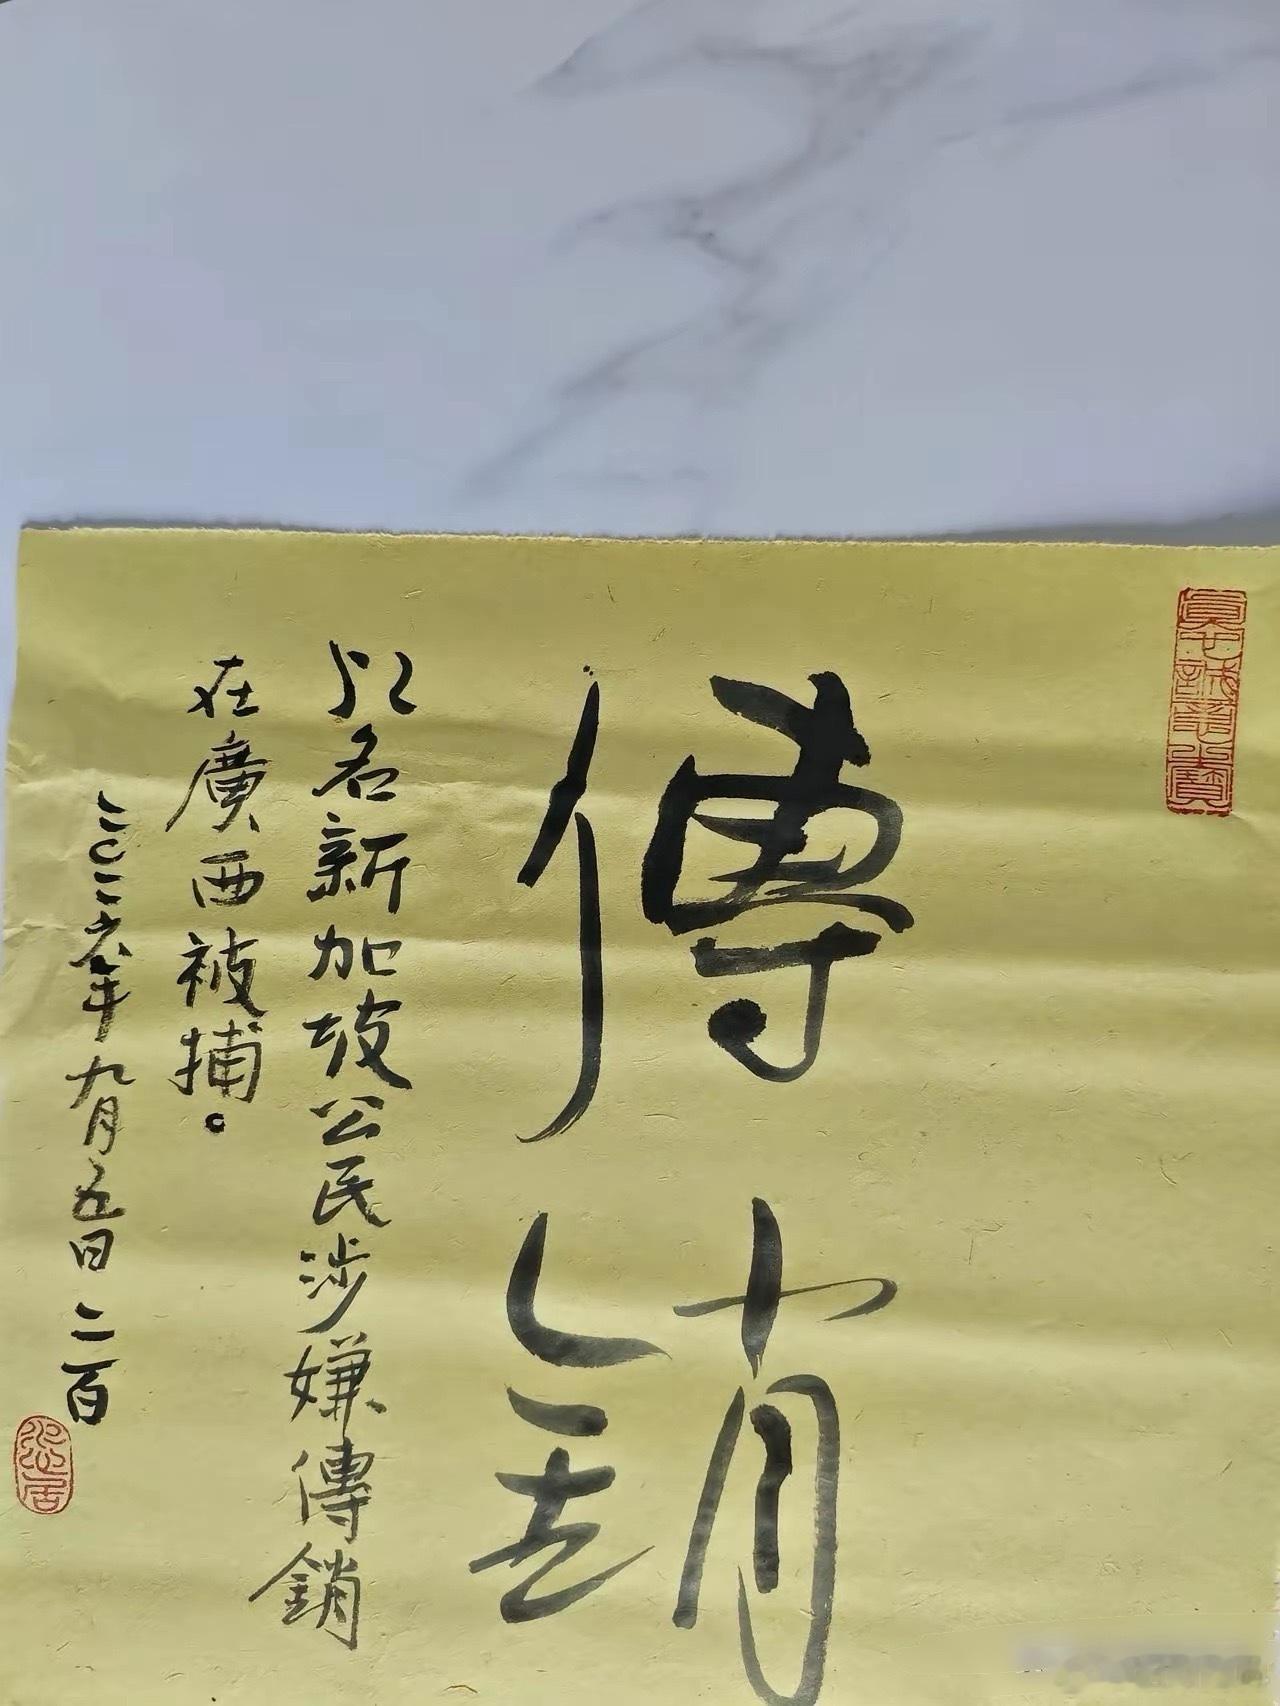 傳銷
名新加坡公民涉嫌傳銷
在廣西被捕。
二〇二六年九月五日 二百